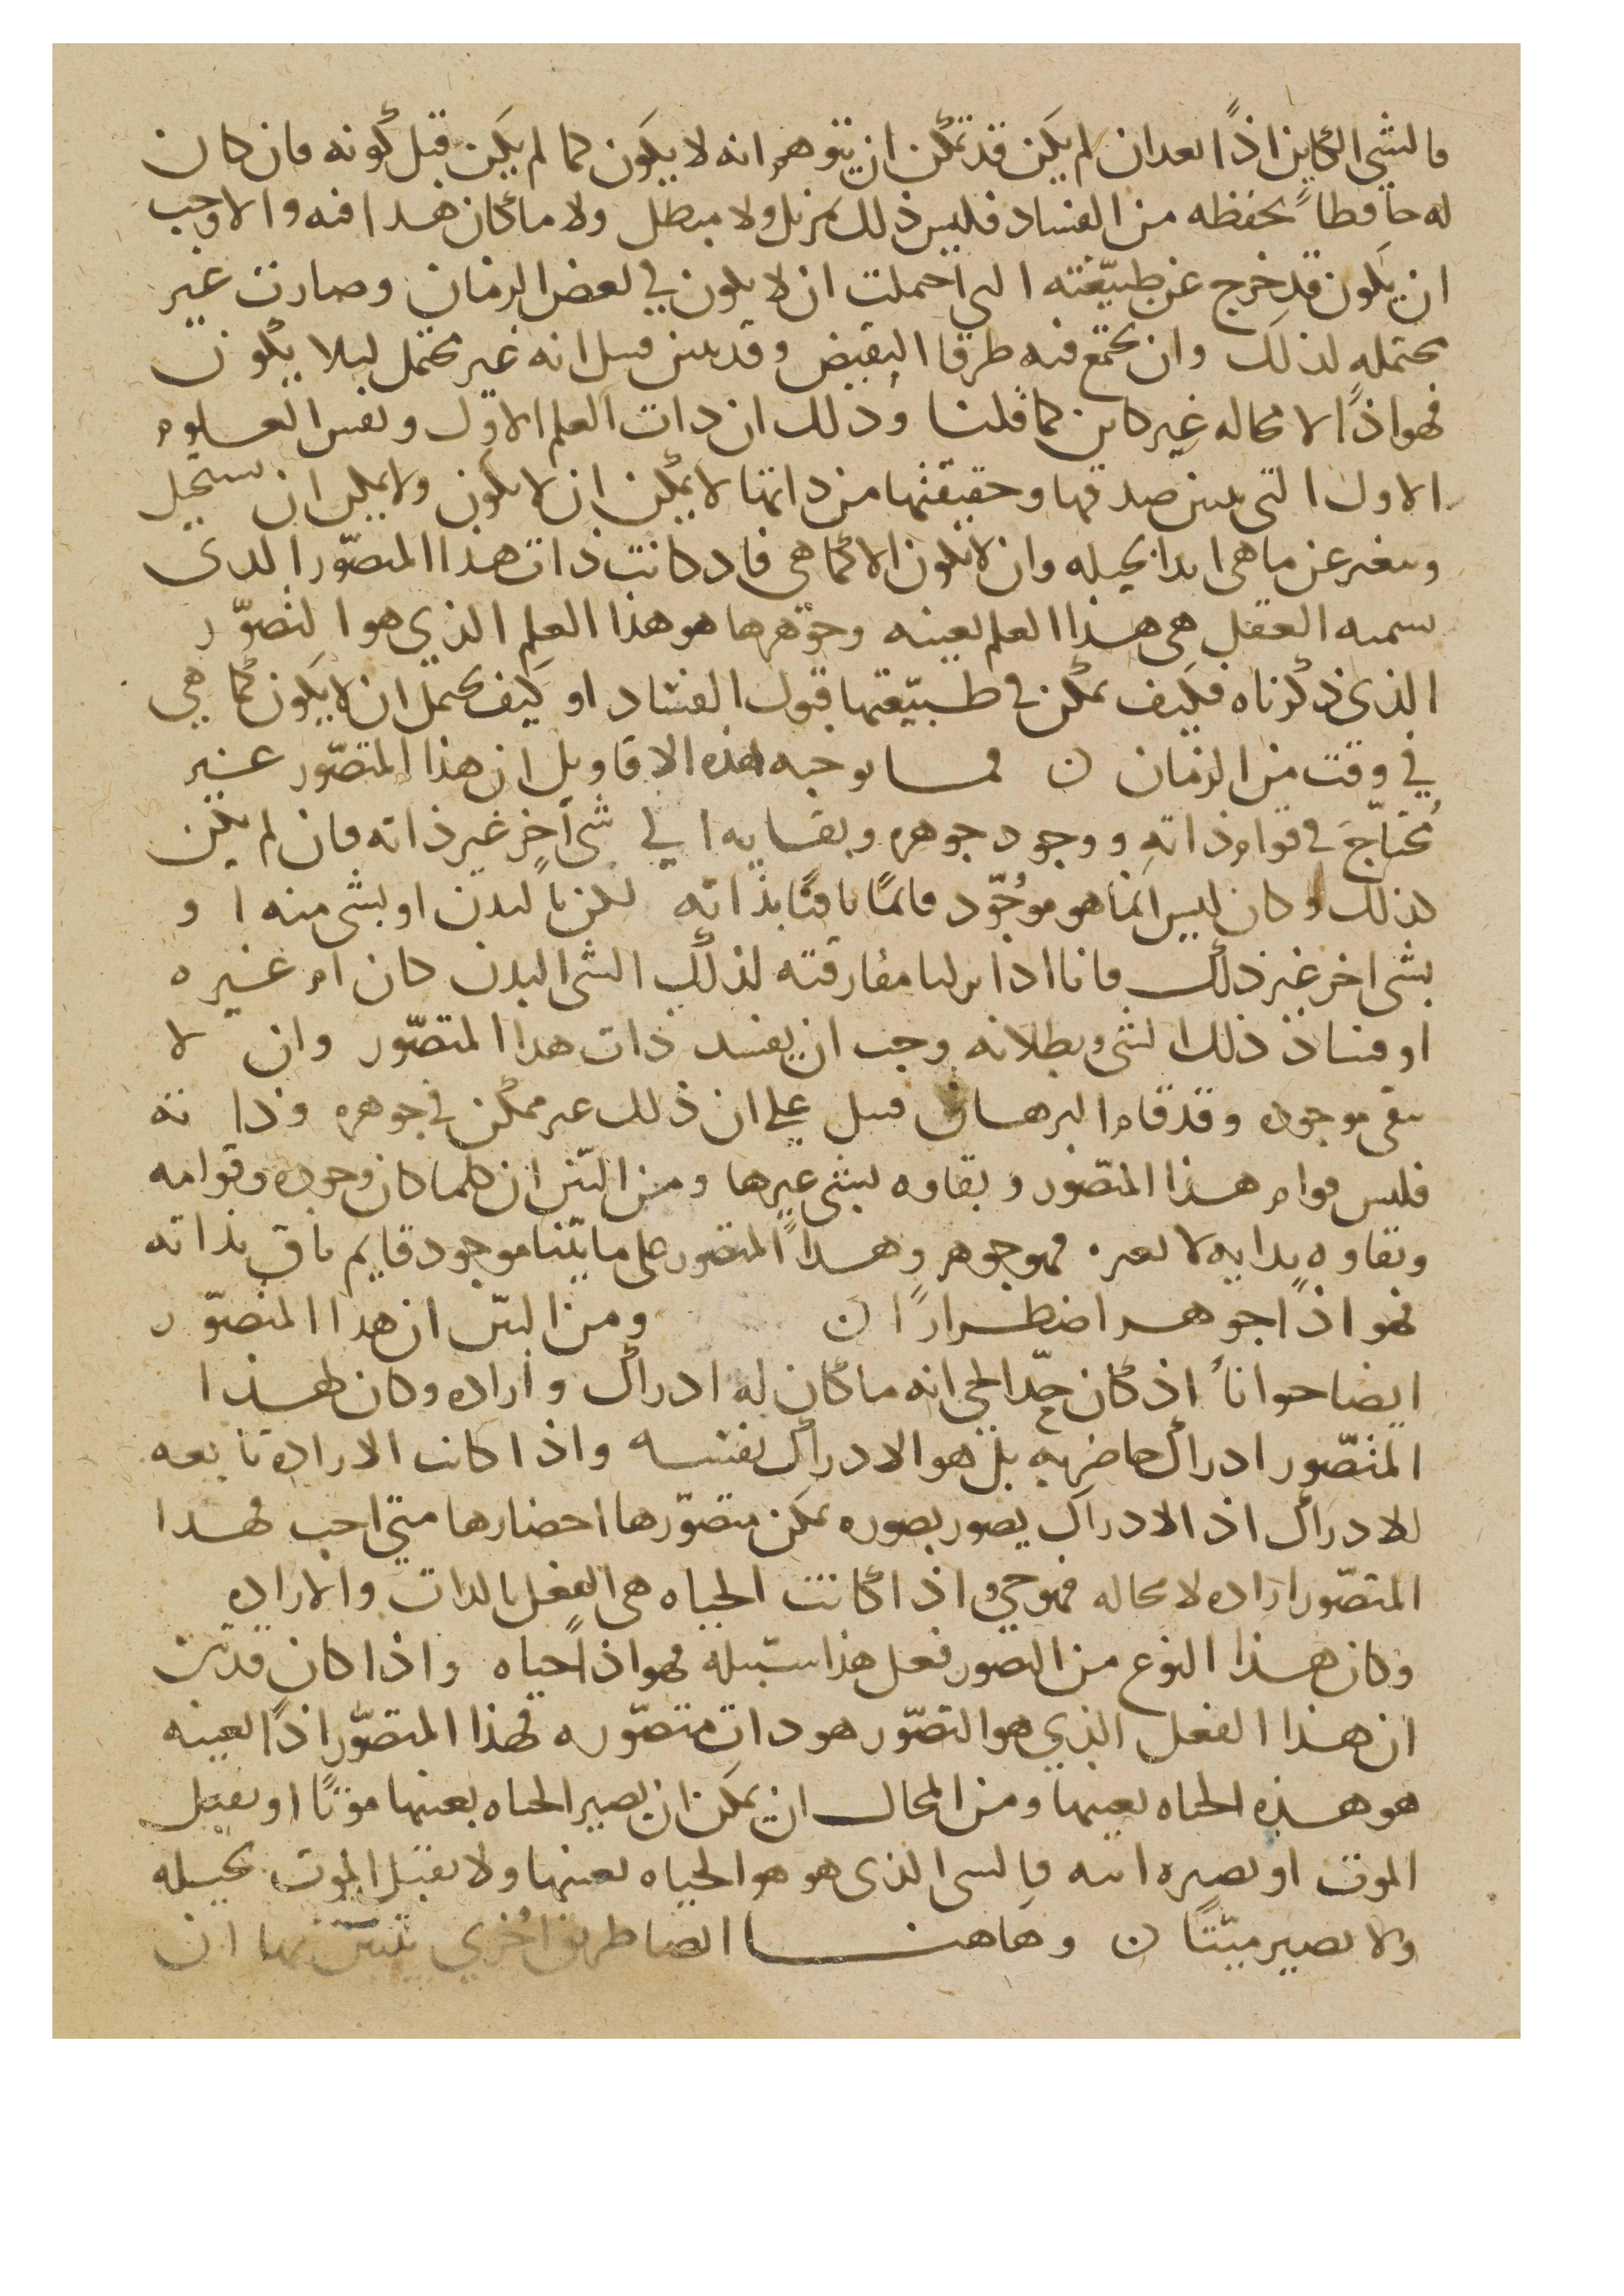 فالشي الكاين اذًا بعد ان لم يكن قد يمكن ان يتوهم انه لا يكون كما لم يكن قبل كونه فان كان
له حافطاً يحفظه من الفساد فليس ذلك بمزيل ولا مبطل ولا ما كان هدا فيه والا وجب
ان يكون قد خرج عن طبيعته التي احتملت ان لا يكون في بعض الزمان وصارت غير
محتمله لذلك وان يجتمع فيه طرفا النقيض وقد بين قبل انه غير محتمل ليلا يكون
فهو اذًا لا محاله غير كاين كما قلنا وذلك ان ذات العلم الاول ونفس العلوم
الاول التي يتبين صدقها وحقيقتها من ذاتها لا يمكن ان لا يكون ولا يمكن ان يستحيل
ويتغير عن ما هي ابدا بحيله وان لا يكون الا كما هي فاذ كانت ذات هذا المتصّور الدى
نسميه العقل هي هذا العلم بعينه وجوهرها هو هذا العلم الذي هو التصوّر
الذي ذكرناه فكيف يمكن في طبيعتها قبول الفساد او كيف يحتمل ان لا يكون كما هي
في وقت من الزمان ن فما يوجبه هذه الاقاويل ان هذا المتصّور غير
مُحتاج في قوام ذاته ووجود جوهره وبقايه الي شي آخر غير ذاته فان لم يكن
كذلك وكان ليس انما هو موجود قائمًا باقيًا بذاته لكن بالبدن او بشي منه ا و
بشي اخر غير ذلك فانا اذا انزلنا مفارقته لذلك الشي البدن كان ام غيره
او فساد ذلك الشي وبطلانه وجب ان يفسد ذات هدا المتصّور وان لا
يبقي موجوده وقد قام البرهان قبل علي ان ذلك غير ممكن في جوهره وذاته
فليس قوام هذا المتصّور وبقاوه بشي غيرها ومن البيّن ان كلما كان وجوده وقوامه
وبقاوه بذاته لا بغيره فهو جوهر وهذا المتصور علي ما بيّنا موجود قايم باق بذاته
فهو اذًا جوهر اضطرارًا ن ومن البيّن ان هدا المتصوّر
ايضا حيوانا اذ كان حدّ الحي انه ما كان له ادراك واراده وكان لهذا
المتصّور ادراك خاص به بل هو الادراك نفسه واذا كانت الاراده تابعه
للادراك اذ الادراك يصور بصوره يمكن متصوّرها احضارها متي احب فهدا
المتصّور اراده لا محاله فهو حي واذا كانت الحياه هي الفعل بالذات والاراده
وكان هذا النوع من التصور فعل هذا سبيله فهو اذًا حياه واذا كان قد تبين
ان هذا الفعل الذي هو التصّور هو ذات متصّوره فهذا المتصّور اذًا بعينه
هو هذه الحياه بعينها ومن المحال ان يمكن ان يصير الحياه بعينها موتًا او يقبل
الموت او يصيره اليه فالشي الذي هو هو الحياه بعينها ولا يقبل الموت بحيله
ولا يصير ميّتًا ن وهاهنا ايضا طريق اخري يتبين بها ان